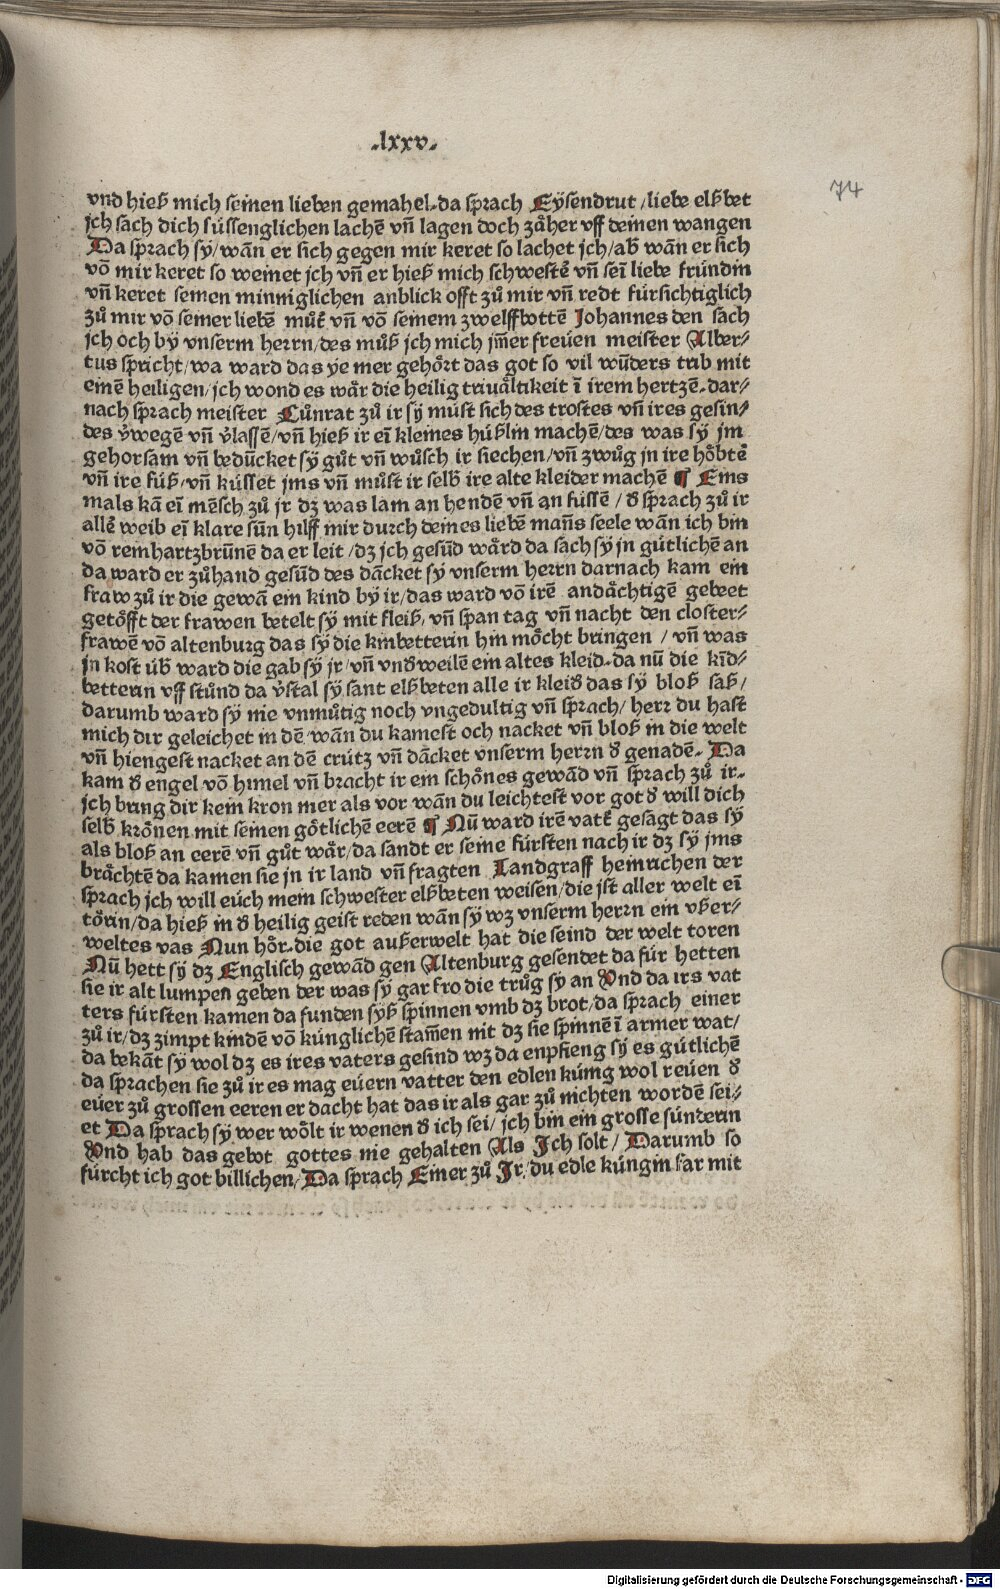 .lxxv.
74
vnd hieß mich seinen lieben gemahel.da sprach Eysendrut /liebe elßbet
jch sach dich süssenglichen lachē vn̄ lagen doch zäher vff deinen wangen
Da sprach sy/wān er sich gegen mir keret so lachet jch/ab wān er sich
vō mir keret so weinet jch vn̄ er hieß mich schwestē vn̄ seī liebe fründin
vn̄ keret seinen minniglichen anblick offt zů mir vn̄ redt fürsichtiglich
zů mir vō seiner liebē můt vn̄ vō seinem zwelffbottē Johannes den sach
jch och by vnserm herrn/des můß jch mich jm̄er freüen meister Alber/
tus spricht/wa ward das ye mer gehört das got so vil wūders trib mit
einē heiligen/jch wond es wär die heilig triuältikeit ī irem hertzē.dar/
nach sprach meister Cůnrat zů ir sy můst sich des trostes vn̄ ires gesin/
des v̄wegē vn̄ v̄lassē/vn̄ hieß ir eī kleines hüßlin machē/des was sy jm
gehorsam vn̄ bedūcket sy gůt vn̄ wůsch ir siechen/vn̄ zwůg jn ire höbtē
vn̄ ire füß/vn̄ küsset jms vn̄ můst ir selb ire alte kleider machē ¶ Eins
mals kā eī mēsch zů jr dz was lam an hendē vn̄ an füssē / d̄ sprach zů ir
allē weib eī klare sūn hilff mir durch deines liebē man̄s seele wān ich bin
vō reinhartzbrūnē da er leit /dz jch gesūd wärd da sach sy jn gütlichē an
da ward er zůhand gesūd des dācket sy vnserm herrn darnach kam ein
fraw zů ir die gewā ein kind by ir/das ward vō irē andächtigē gebeet
getöfft der frawen betelt sy mit fleiß/ vn̄ span tag vn̄ nacht den closter/
frawē vō altenburg das sy die kinbetterin hin möcht bringen / vn̄ was
jn kost üb ward die gab sy jr/vn̄ vnd̄weilē ein altes kleid.da nū die kīd/
betterin vff stůnd da v̄stal sy sant elßbeten alle ir kleid̄ das sy bloß saß/
darumb ward sy nie vnmůtig noch vngedultig vn̄ sprach/ herr du hast
mich dir geleichet in dē wān du kamest och nacket vn̄ bloß in die welt
vn̄ hiengest nacket an dē crütz vn̄ dācket vnserm herrn d̄ genadē. Da
kam d̄ engel vō himel vn̄ bracht ir ein schönes gewād vn̄ sprach zů ir.
jch bring dir kein kron mer als vor wān du leichtest vor got d̄ will dich
selb krönen mit seinen götlichē eerē ¶ Nū ward irē vatē gesagt das sy
als bloß an eerē vn̄ gůt wär/da sandt er seine fürsten nach ir dz sy jms
brächtē da kamen sie jn ir land vn̄ fragten Landgraff heinrichen der
sprach jch will eüch mein schwester elßbeten weisen/die jst aller welt eī
törin/da hieß in d̄ heilig geist reden wān sy wz vnserm herrn ein vßer/
weltes vas Nun hör.die got außerwelt hat die seind der welt toren
Nū hett sy dz Englisch gewād gen Altenburg gesendet da für hetten
sie ir alt lumpen geben der was sy gar fro die trůg sy an Vnd da irs vat
ters fürsten kamen da funden syß spinnen vmb dz brot/da sprach einer
zů ir/dz zimpt kindē vō künglichē stam̄en nit dz sie spinnē ī armer wat/
da bekāt sy wol dz es ires vaters gesind wz da enpfieng sy es gütlichē
da sprachen sie zů ir es mag eüern vatter den edlen küng wol reüen d̄
eüer zů grossen eeren er dacht hat das ir als gar zů nichten wordē sei/
et Da sprach sy wer wölt ir wenen d̄ ich sei/ jch bin ein grosse sünderin
Vnd hab das gebot gottes nie gehalten Als Ich solt/ Darumb so
fürcht ich got billichen/Da sprach Einer zů Jr/du edle küngin far mit
Digitalisierung gefördert durch die Deutsche Forschungsgemeinschaft - DFG